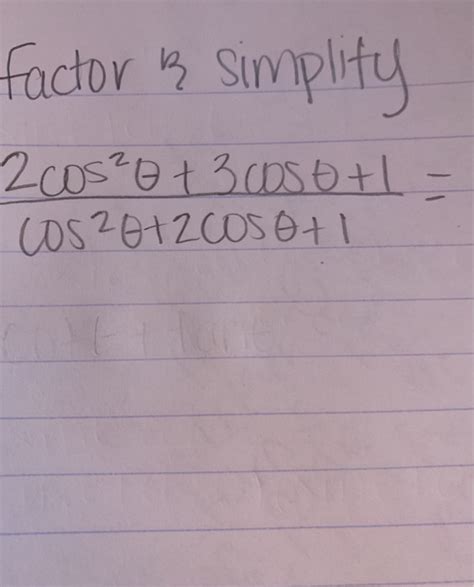 factor & simplify
2cos²θ + 3cosθ + 1 =
cos²θ + 2cosθ + 1